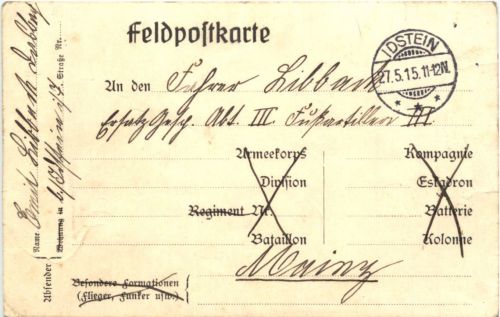 Feldpostkarte
IDSTEIN
27.5.15.11-12N.
An den Fahrer Libbach
Ersatz Gesp. Abt. III Fußartillerie III.
Armeekorps Kompagnie
Division Eskadron
Regiment Nr. Batterie
Bataillon Kolonne
Mainz
Besondere Formationen
(Flieger, Funker usw.)
Absender
Name Emil Libbach
Wohnung in Idstein Straße Nr.